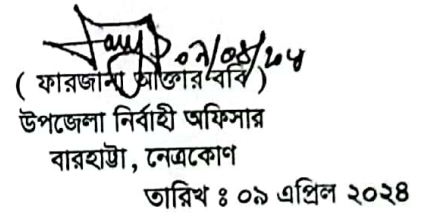 ০৯/০৪/২৪
( ফারজানা আক্তার ববি )
উপজেলা নির্বাহী অফিসার
বারহাট্টা, নেত্রকোণ
তারিখ ঃ ০৯ এপ্রিল ২০২৪